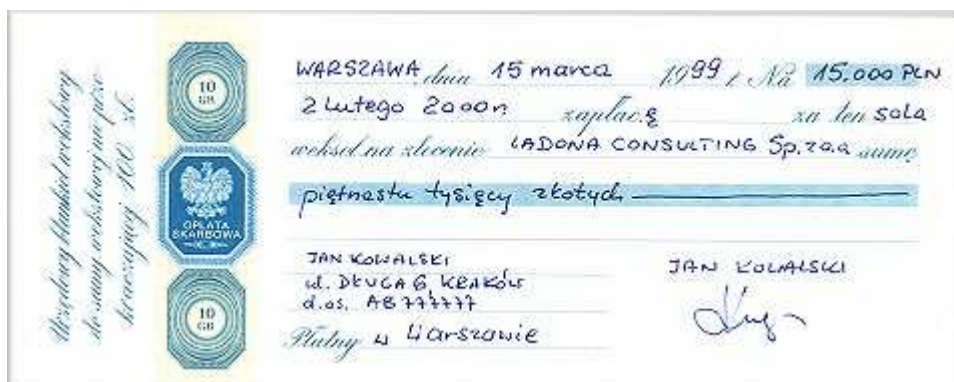 Urzędowy blankiet wekslowy
do sumy wekslowej nie prze-
kraczającej 100 zł.
10
GR
OPŁATA
SKARBOWA
10
GR
WARSZAWA, dnia 15 marca 1999 r. Na 15.000 PLN
2 lutego 2000r. zapłacę za ten sola
weksel na zlecenie LADONA CONSULTING Sp. z o.o sumę
piętnastu tysięcy złotych
JAN KOWALSKI
ul. DŁUGA 6, KRAKÓW
d.os. AB 777777
Płatny w Warszawie
JAN KOWALSKI